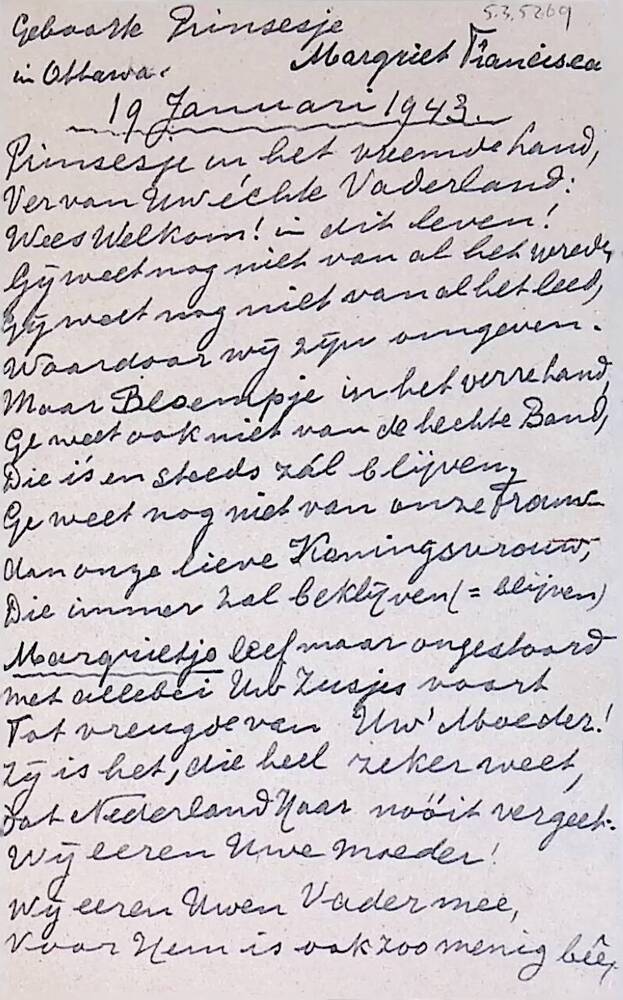 5.3.5269
Geboorte Prinsesje
Margriet Francisca
in Ottawa.
19 Januari 1943.
Prinsesje in het vreemde land,
Ver van Uw échte Vaderland:
Wees Welkom! in dit leven!
Gij weet nog niet van al het wreed,
Gij weet nog niet van al het leed,
Waardoor wij zijn omgeven.
Maar Bloempje in het verre land,
Ge weet ook niet van de hechte Band,
Die ís en steeds zál blijven,
Ge weet nog niet van onze Trouw
Aan onze lieve Koningsvrouw,
Die immer zal beklijven (= blijven)
Margrietje leef maar ongestoord
Met allebei Uw Zusjes voort
Tot vreugde van Uw' Moeder!
Zij is het, die heel zeker weet,
Dat Nederland Haar nóóit vergeet.
Wij eeren Uwe Moeder!
Wij eeren Uwen Vader mee,
Voor Hem is ook zoo menig beê,